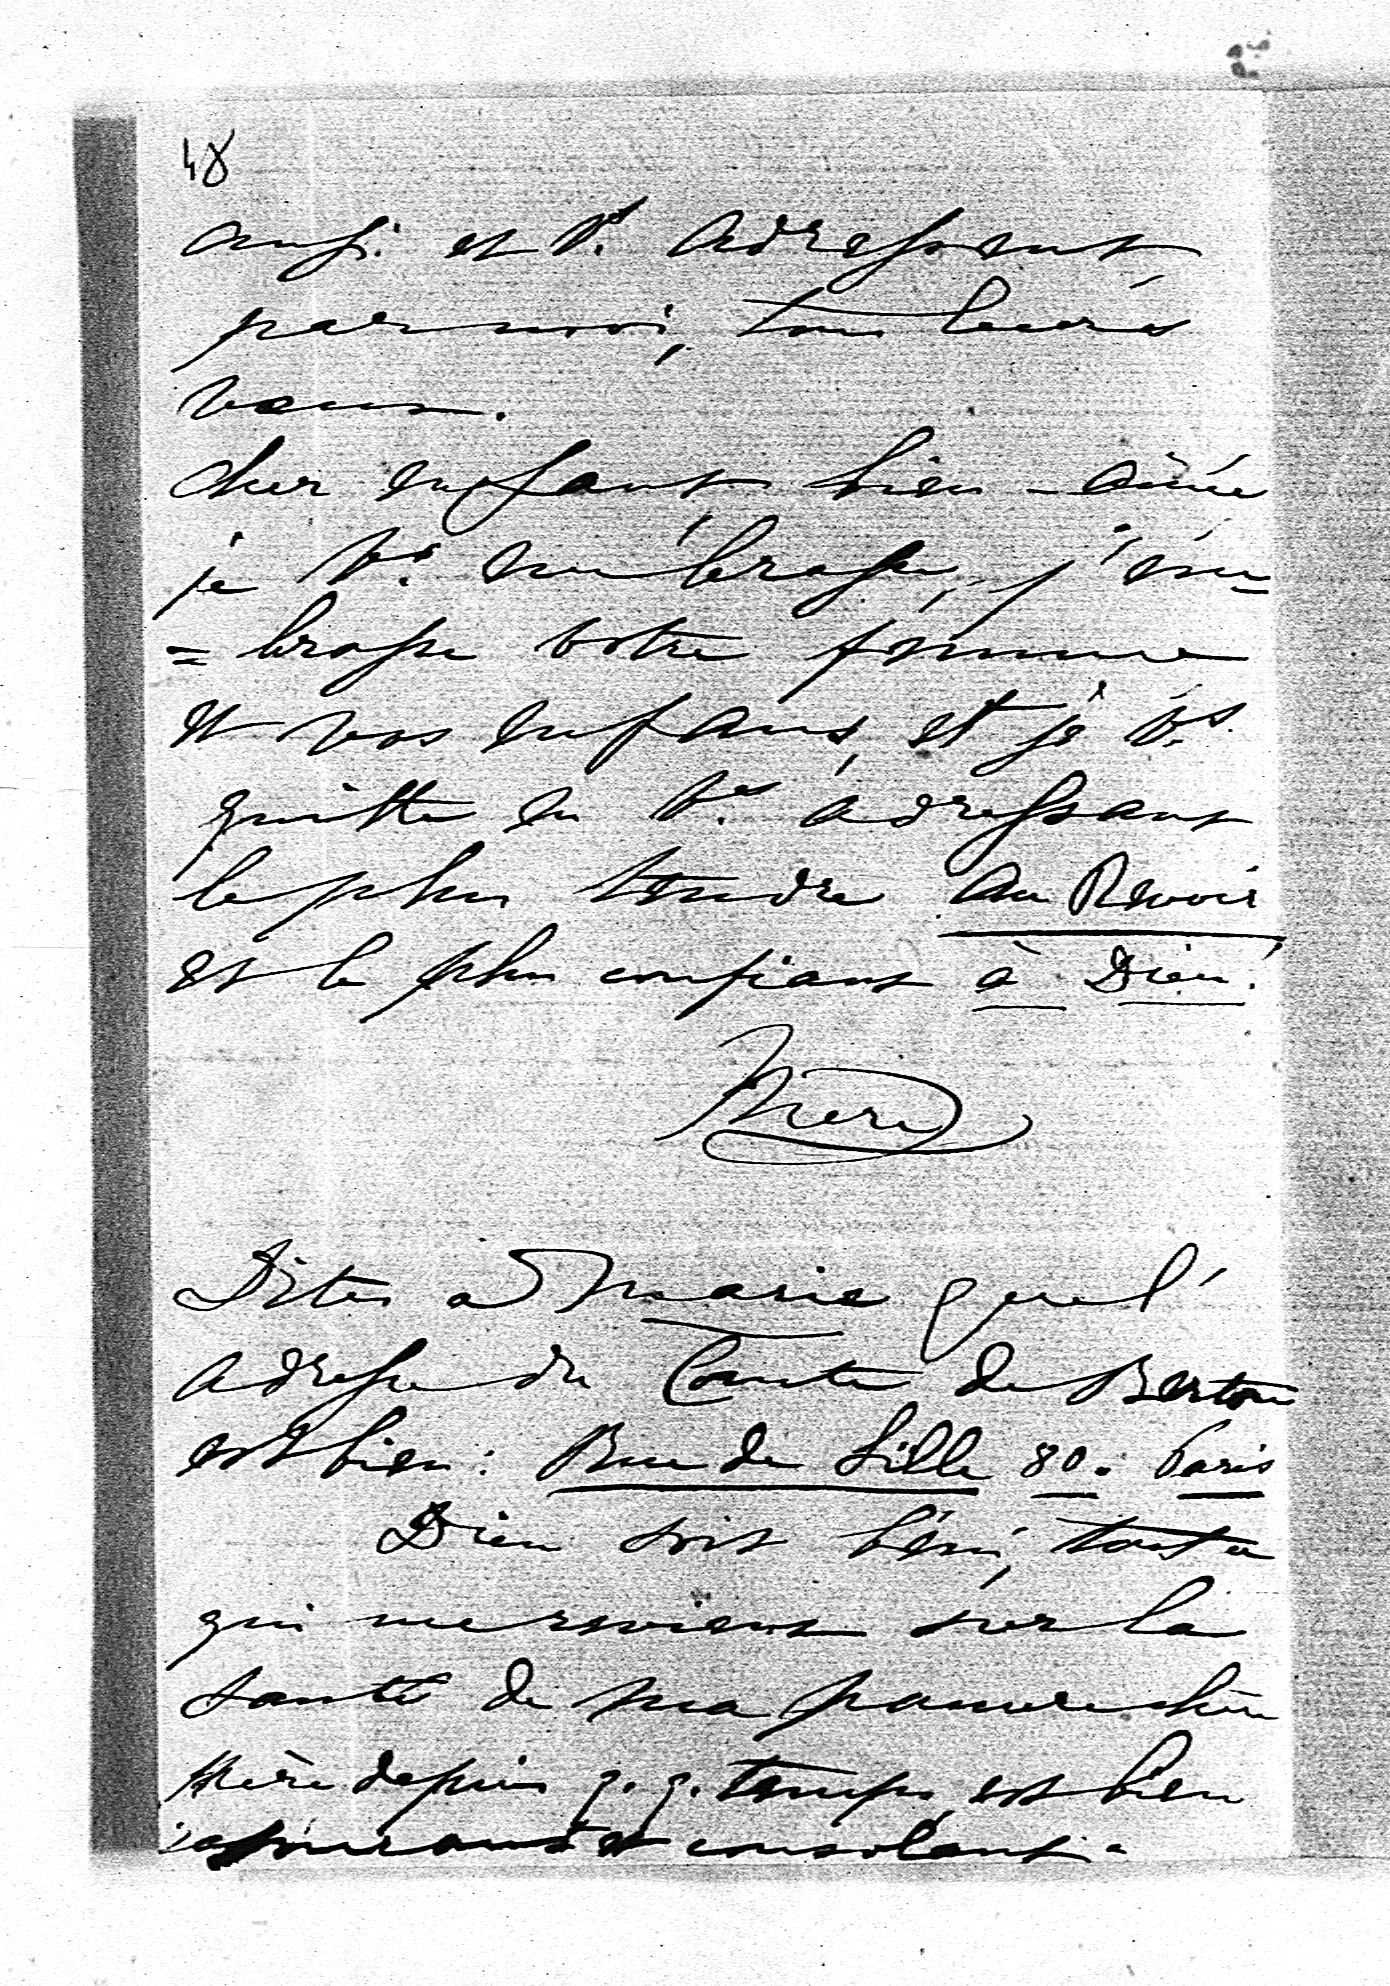 48
aussi et vs adressent
par moi, tous leurs
vœux.
Cher enfant bien-aimé
je vs embrasse, j'em-
=brasse votre femme
et vos enfans, et je vs
quitte en vs adressant
le plus tendre au Revoir
et le plus confiant à Dieu!
Mère
Dites à Marie que l'
adresse du Comte de Bertou
est bien : Rue de Lille 80. Paris
Dieu soit béni, tout ce
qui me revient sur la
santé de ma pauvre chère
Mère depuis q. q. temps, est bien
rassurant et consolant.